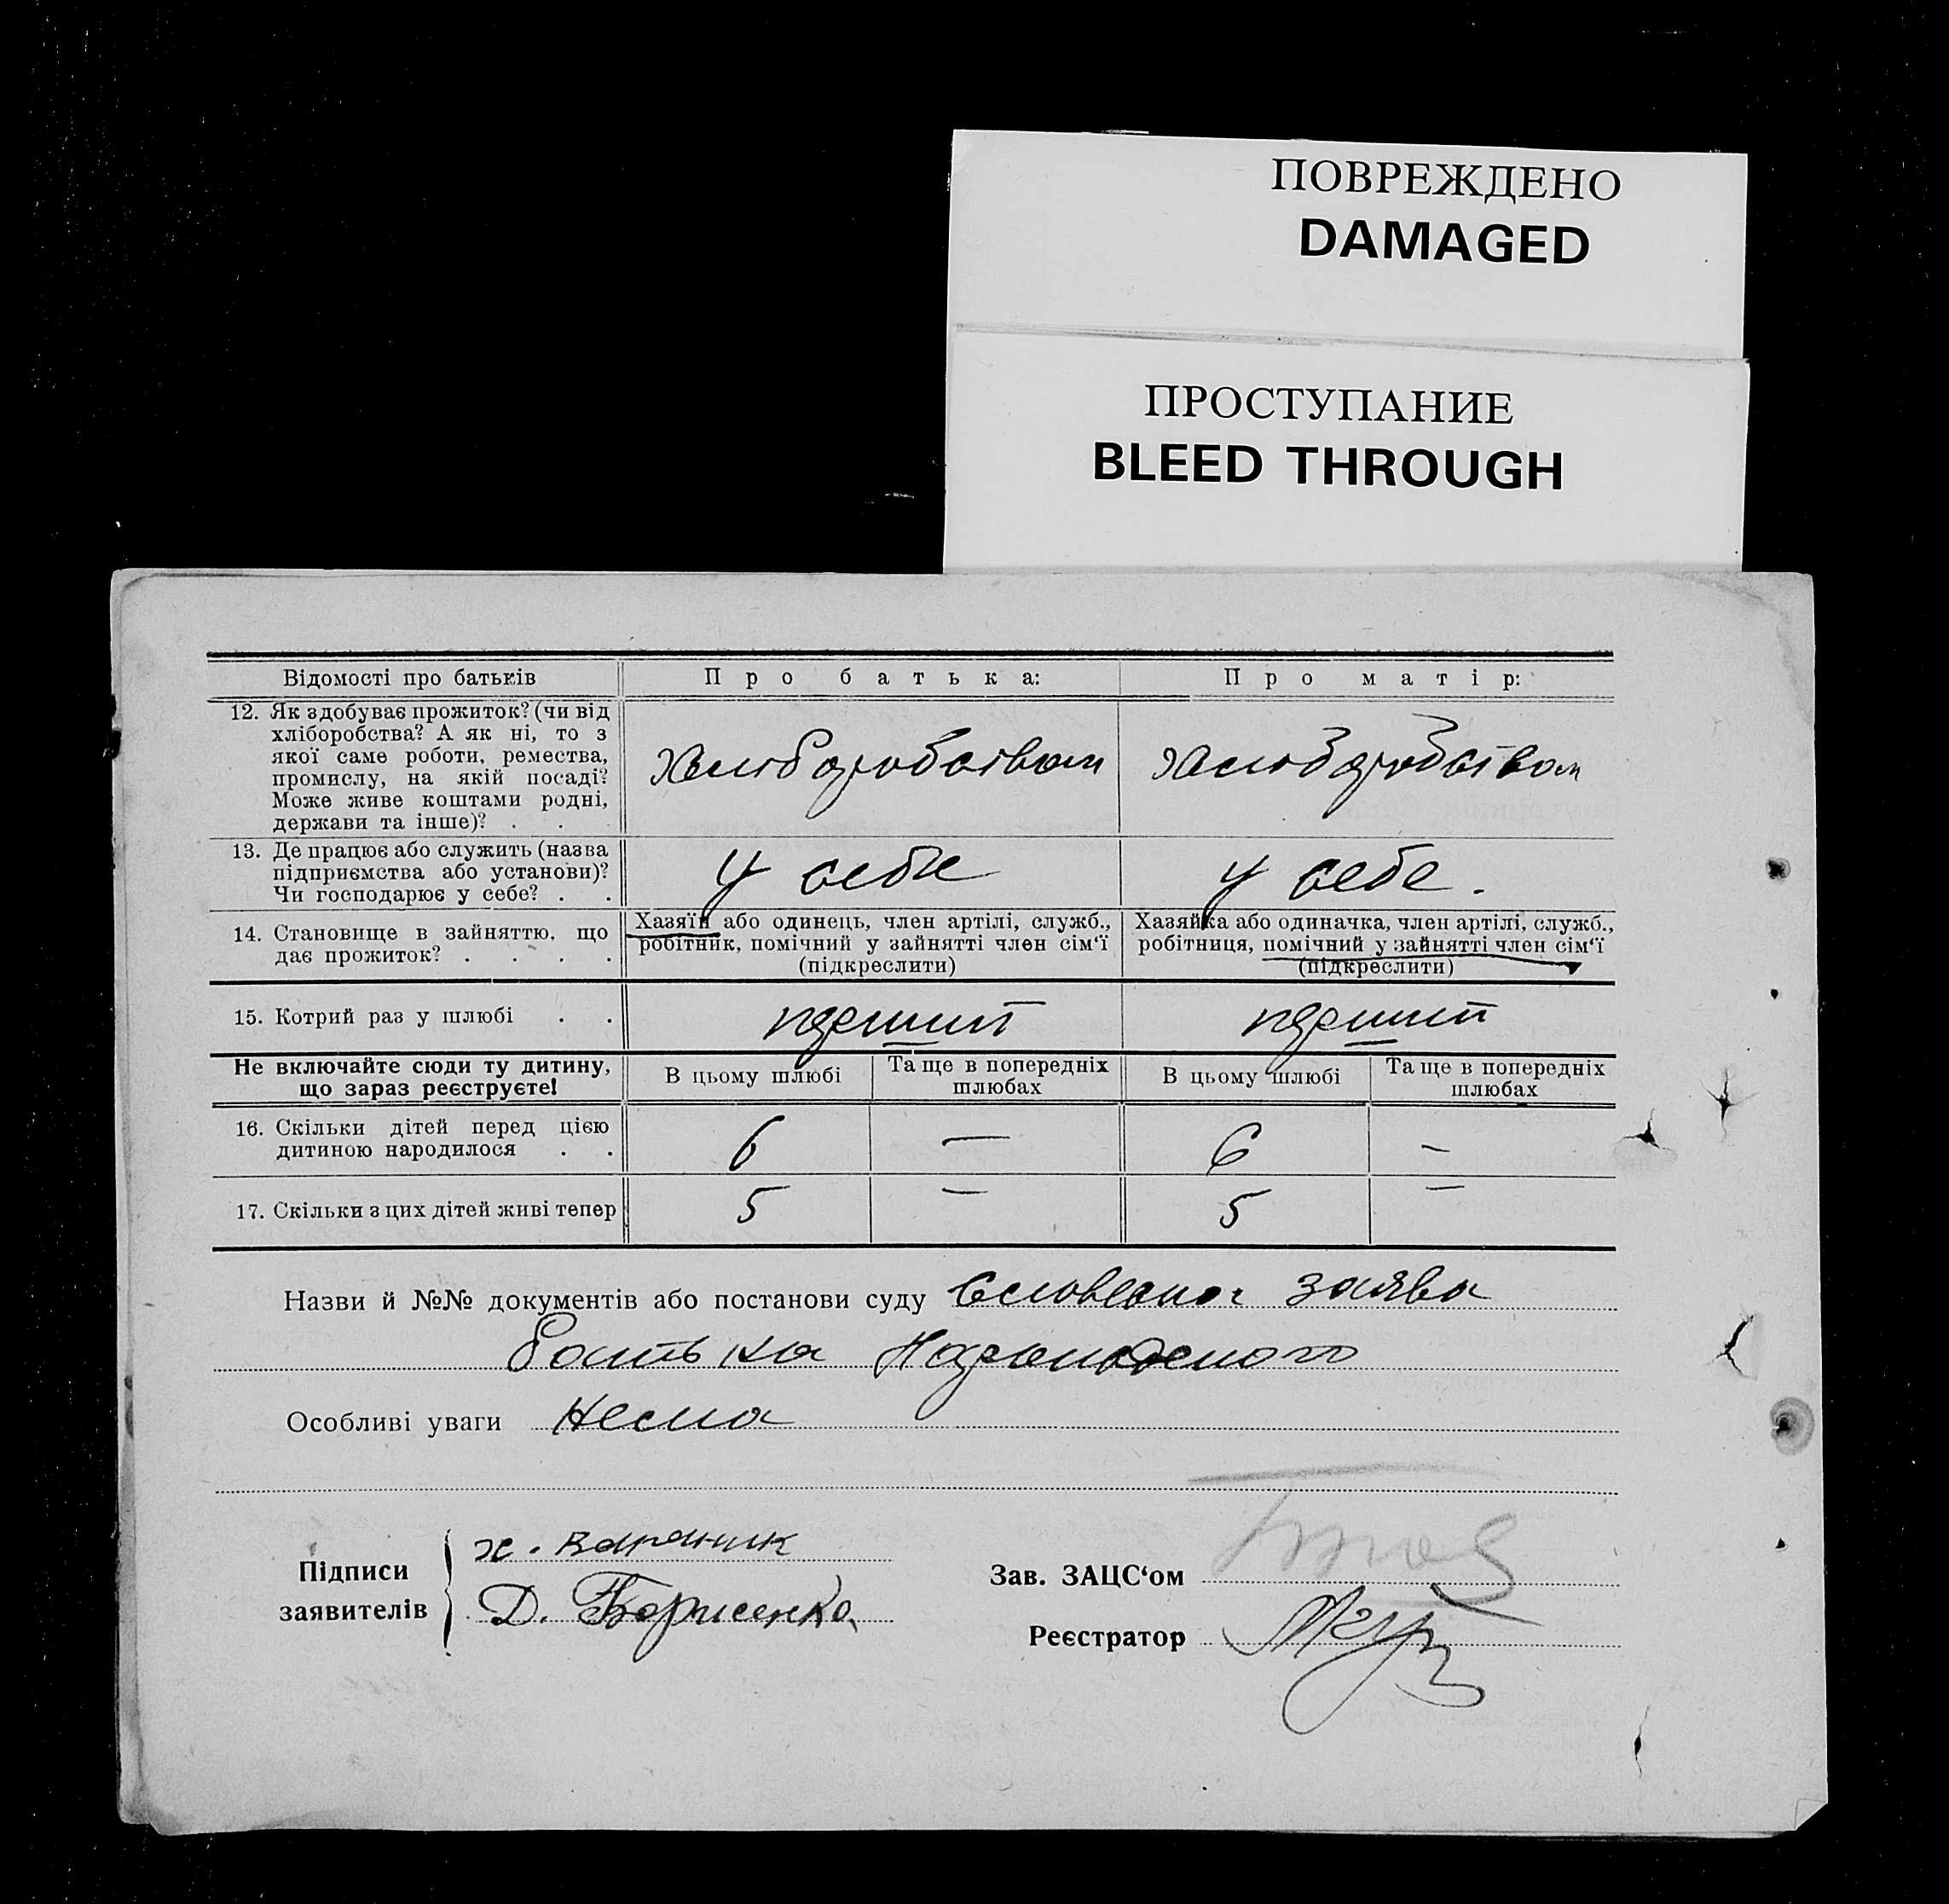 ПОВРЕЖДЕНО
DAMAGED
ПРОСТУПАНИЕ
BLEED THROUGH
Відомості про батьків
Про батька:
Про матір:
12. Як здобуває прожиток? (чи від
хліборобства? А як ні, то з
якої саме роботи, ремества,
промислу, на якій посаді?
Може живе коштами родні,
держави та інше)? . .
хліборобством
хліборобством
13. Де працює або служить (назва
підприємства або установи)?
Чи господарює у себе? . .
У себе
у себе.
14. Становище в зайняттю, що
дає прожиток? . . . .
Хазяїн або одинець, член артілі, служб.,
робітник, помічний у зайнятті член сім‘ї
(підкреслити)
Хазяйка або одиначка, член артілі, служб.,
робітниця, помічний у зайнятті член сім‘ї
(підкреслити)
15. Котрий раз у шлюбі . .
перший
перший
Не включайте сюди ту дитину,
що зараз реєструєте!
В цьому шлюбі
Та ще в попередніх
шлюбах
В цьому шлюбі
Та ще в попередніх
шлюбах
16. Скільки дітей перед цією
дитиною народилося . .
6
—
6
—
17. Скільки з цих дітей живі тепер
5
—
5
—
Назви й №№ документів або постанови суду Словесна заява
батька
Особливі уваги Нема
Підписи
заявителів
Д. Борисенко
Зав. ЗАЦС‘ом
Реєстратор